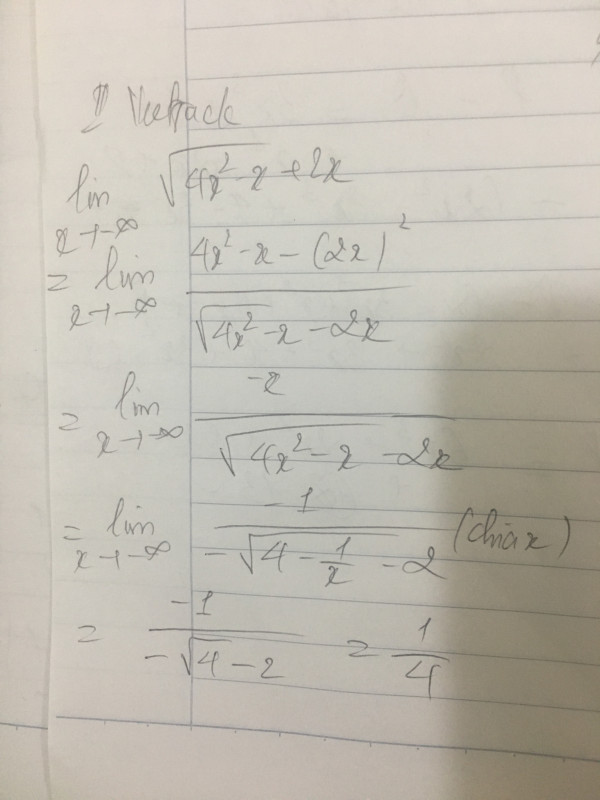 lim x→-∞ √(4x² - x) + 2x
= lim x→-∞ (4x² - x - (2x)²) / (√(4x² - x) - 2x)
= lim x→-∞ -x / (√(4x² - x) - 2x)
= lim x→-∞ -1 / (-√(4 - 1/x) - 2) (chia x)
= -1 / (-√4 - 2) = 1/4